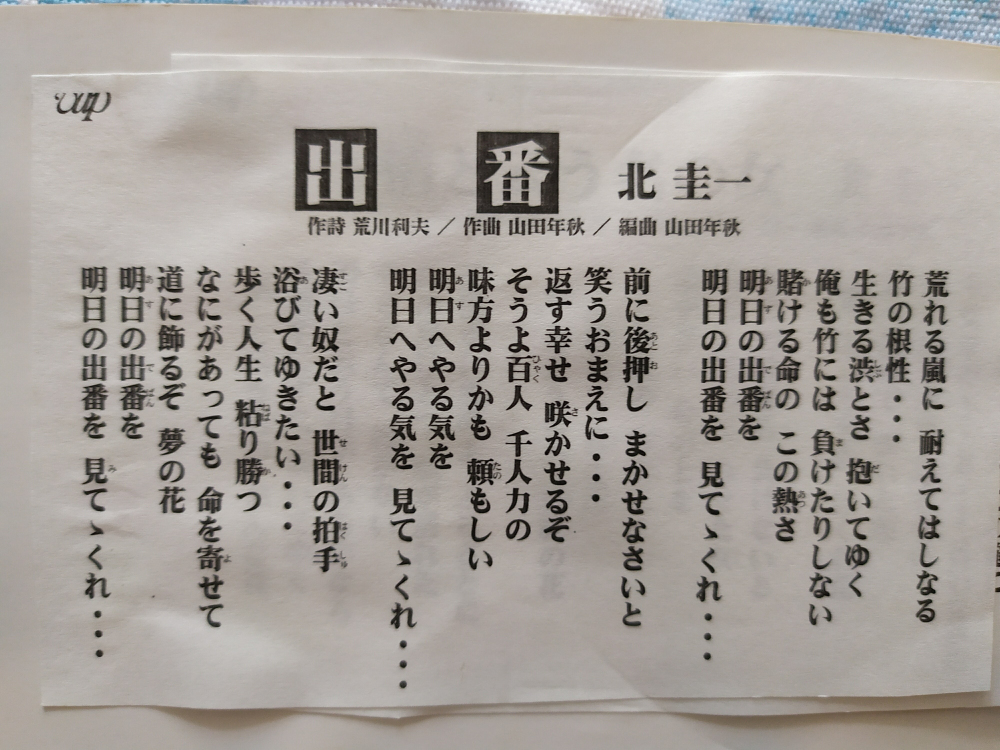 出番 北 圭一
作詩 荒川利夫 / 作曲 山田年秋 / 編曲 山田年秋
荒れる嵐に 耐えてはしなる
竹の根性・・・
生きる渋とさ 抱いてゆく
俺も竹には 負けたりしない
賭ける命の この熱さ
明日の出番を
明日の出番を 見てゝくれ・・・
前に後押し まかせなさいと
笑うおまえに・・・
返す幸せ 咲かせるぞ
そうよ百人 千人力の
味方よりかも 頼もしい
明日へやる気を
明日へやる気を 見てゝくれ・・・
凄い奴だと 世間の拍手
浴びてゆきたい・・・
歩く人生 粘り勝つ
なにがあっても 命を寄せて
道に飾るぞ 夢の花
明日の出番を
明日の出番を 見てゝくれ・・・